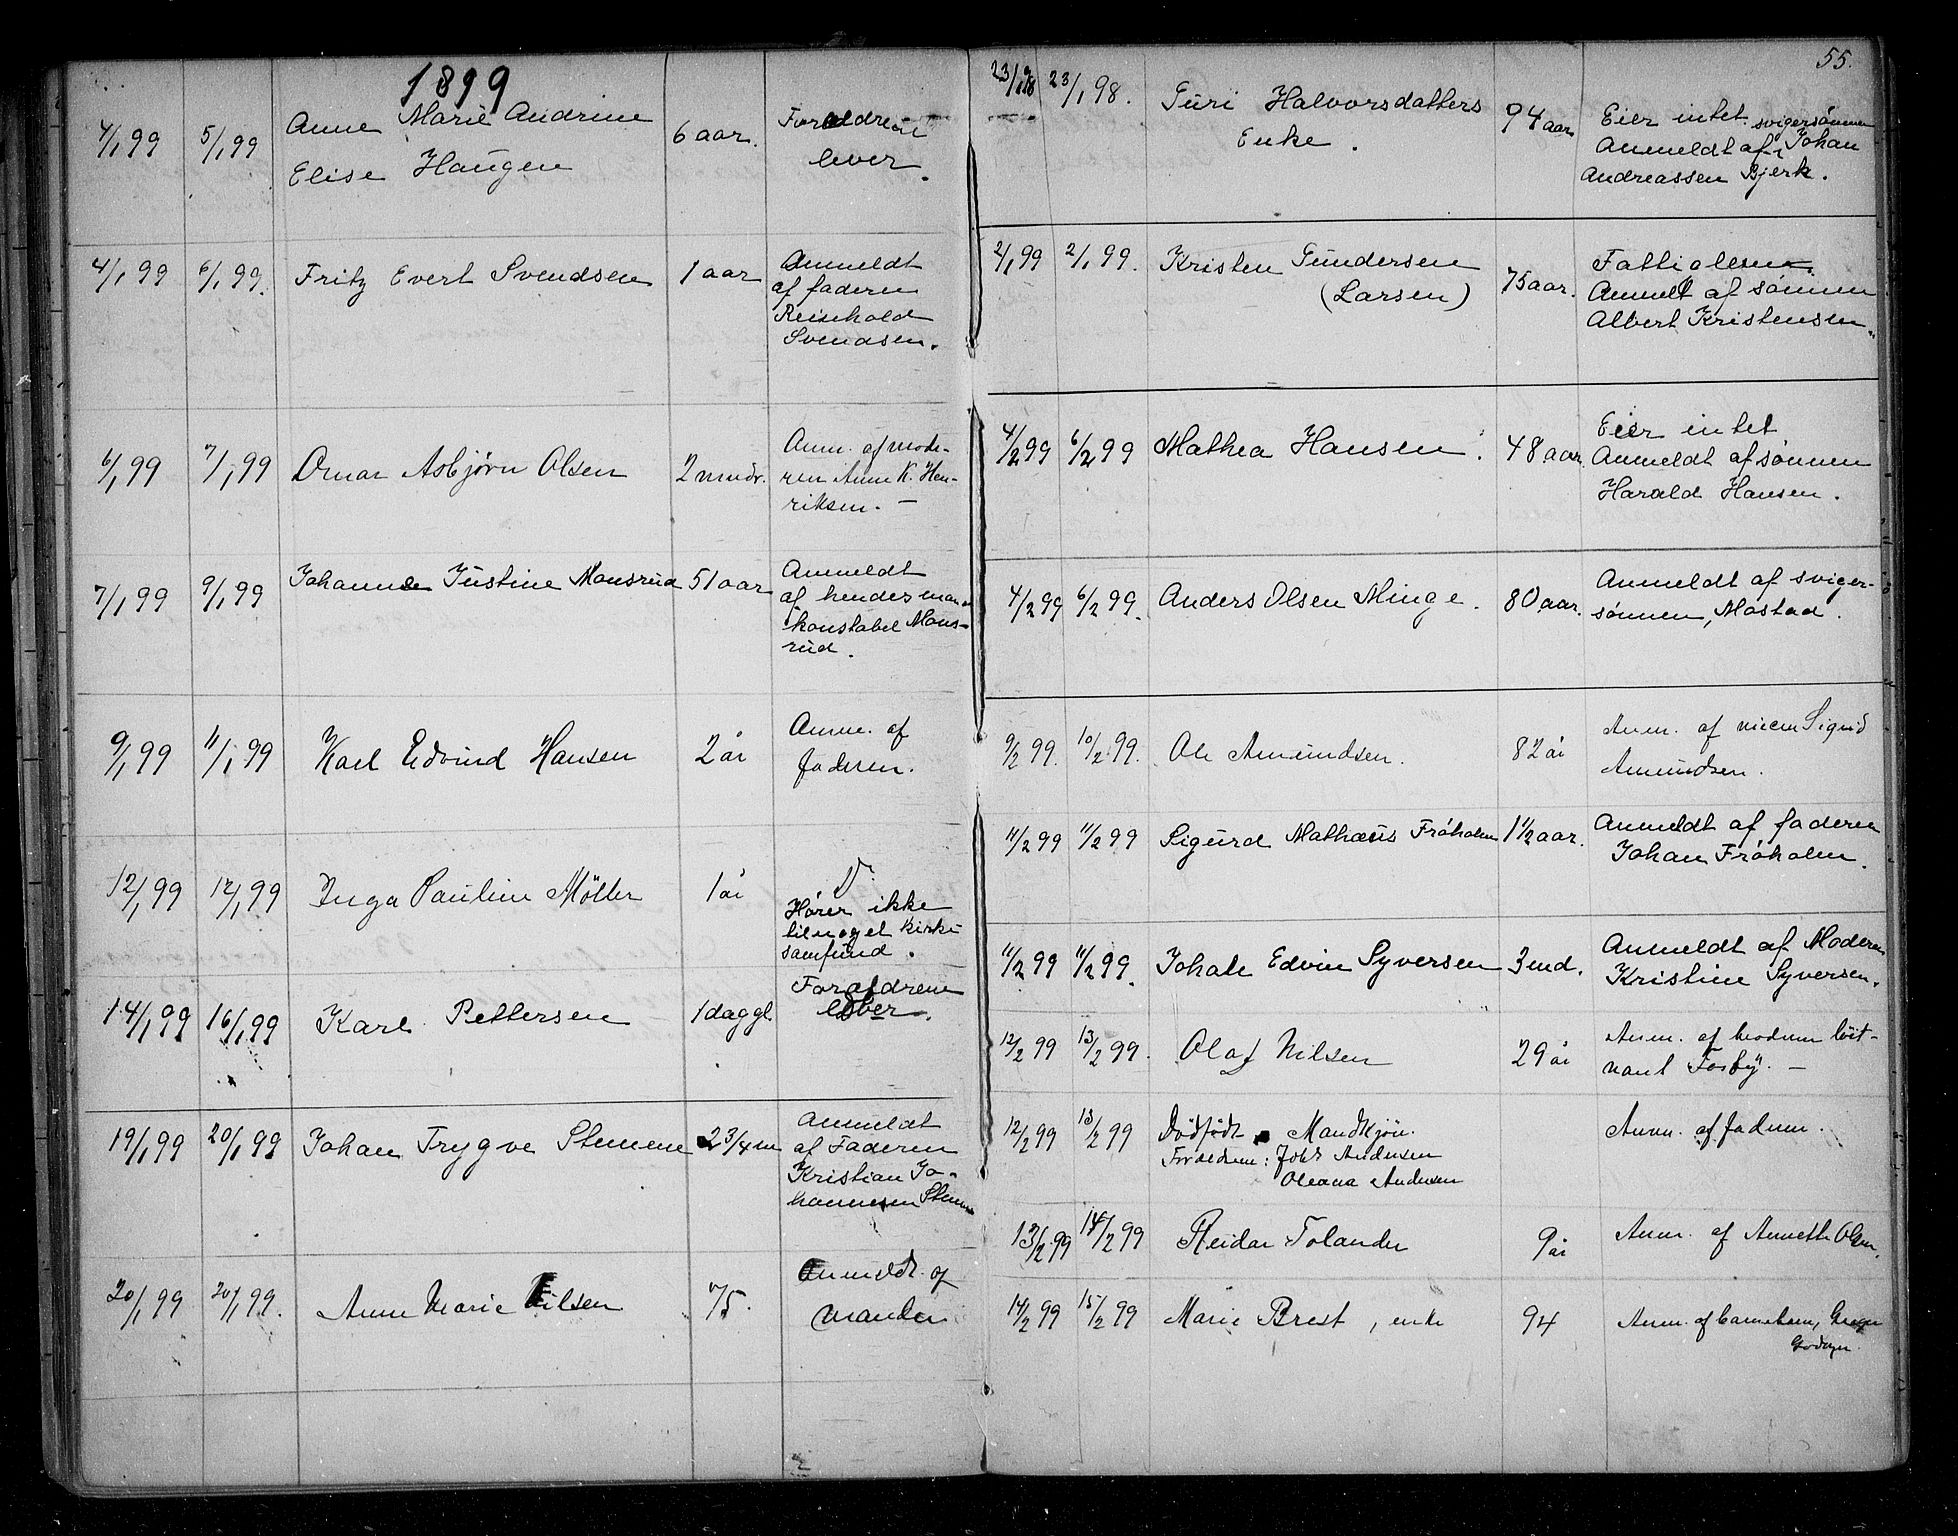 1899
4/1 99 5/1 99 Anne Marie Andrine 6 aar. Forældrene
Elise Haugen lever.
4/1 99 6/1 99. Fritz Evert Svendsen 1 aar Anmeldt
af faderen
Reinhold
Svendsen.
6/1 99 7/1 99 Omar Asbjørn Olsen 2 mndr. Anm. af mode-
ren Anne K. Hen-
riksen. –
7/1 99 9/1 99 Johanne Justine Monsrud 51 aar Anmeldt
af hendes man
konstabel Mons-
rud.
9/1 99 11/1 99 Karl Edvind Hansen 2 år Anm. af
faderen.
12/1 99 12/1 99 Inga Pauline Möller 1 år
Hører ikke
til noget kirke
samfund.
14/1 99 16/1 99 Karl Pettersen 1 dag gl. Forældrene
lever.
19/1 99 20/1 99 Johan Trygve Stemme 2 3/4 m Anmeldt
af Faderen
Kristian Jo-
hannesen
20/1 99 20/1 99. Anne Marie Nilsen 75. Anmeldt af
manden
55.
23/1 98 23/1 98. Turi Halvorsdatters 94 aar Eier intet. svigersønnen
Enke. Anmeldt af Johan
Andreassen Bjerk.
2/1 99 2/1 99. Kristen Gundersen 75 aar.
(Larsen) Anmelt af sønnen
Albert Kristensen.
4/2 99 6/2 99 Mathea Hansen. 48 aar. Eier intet
Anmeldt af sønnen
Harald Hansen.
4/2 99 6/2 99. Anders Olsen Minge. 80 aar. Anmeldt af sviger-
sønnen, Mostad.
9/2 99. 10/2 99. Ole Amundsen. 82 år Anm. af niecen Sigrid
Amundsen.
11/2 99 11/2 99 Sigurd Mathæus Fröholm 1 1/2 aar. Anmeldt af faderen
Johan Fröholm.
11/2 99 11/2 99. Johan Edvin Syversen 3 md. Anmeldt af Moderen
Kristine Syversen.
12/2 99 13/2 99. Olaf Nilsen 29 år Anm. af broderen löit-
nant Fosby. –
12/2 99 13/2 99 Dödfödt Mandkjön. Anm. af faderen.
Forældrene: Johs Andersen
Oleana Andersen
13/2 99 14/2 99 Reidar Tolander 9 år Anm. af Annette Olsen.
14/2 99 15/2 99 Marie Brest, enke 94 Anm. af barnebarn,